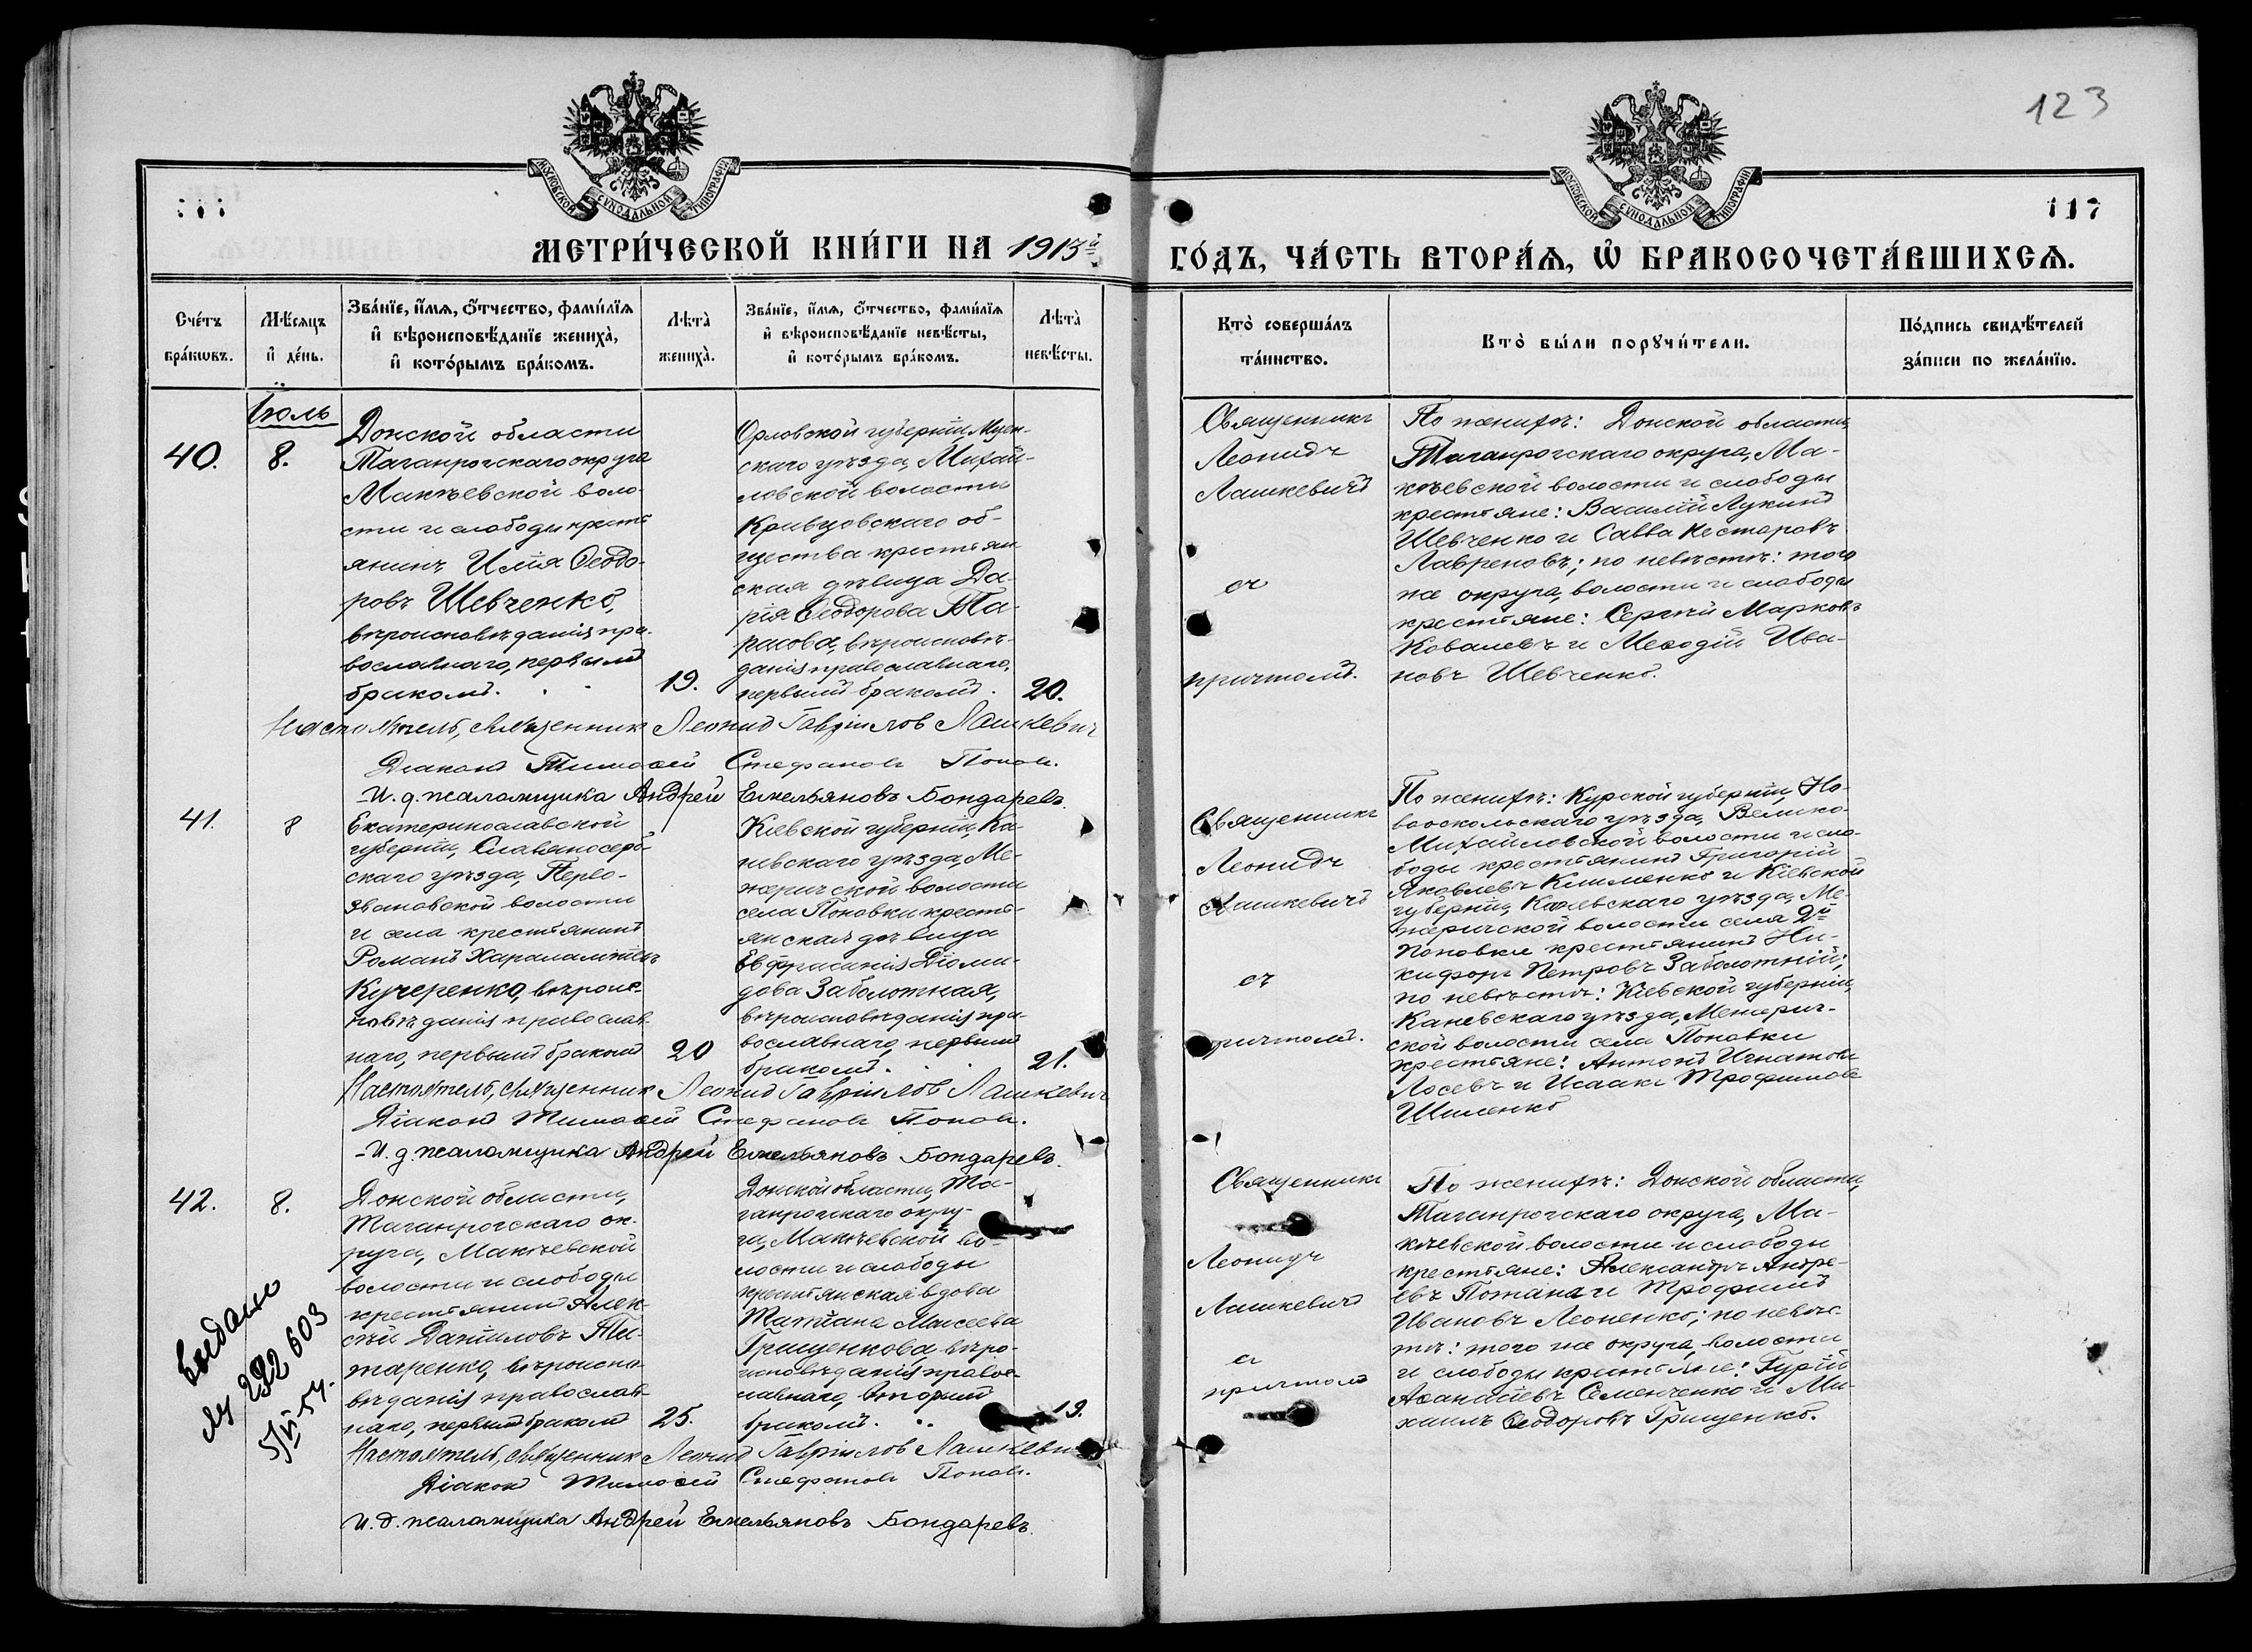 123
117
МОСКОВСКОЙ СѴНОДАЛЬНОЙ ТИПОГРАФІИ
МОСКОВСКОЙ СѴНОДАЛЬНОЙ ТИПОГРАФІИ
МЕТРИ́ЧЕСКОЙ КНИ́ГИ НА 1913й
ГО́ДЪ, ЧА́СТЬ ВТОРА́Ѧ, Ѡ҆ БРАКОСОЧЕТА́ВШИХСѦ.
Сче́тъ бра́кѡвъ.
Мѣ́сѧцъ и҆ де́нь.
Зва́нїе, и҆́мѧ, ѻ҆́тчество, фами́лїѧ
и҆ вѣроисповѣ́данїе жениха̀,
и҆ кото́рымъ бра́комъ.
Лѣта̀ жениха̀.
Зва́нїе, и҆́мѧ, ѻ҆́тчество, фами́лїѧ
и҆ вѣроисповѣ́данїе невѣ́сты,
и҆ кото́рымъ бра́комъ.
Лѣта̀ невѣ́сты.
Кто̀ соверша́лъ та́инство.
Кто̀ бы́ли порꙋчи́тели.
По́дпись свидѣ́телей
за́писи по жела́нїю.
Іюль
40.
8.
Донской области
Таганрогскаго округа
Макѣевской воло-
сти и слободы кресть
янинъ Илія Ѳеодо-
ровъ Шевченко,
вѣроисповѣданія пра-
вославнаго, первымъ
бракомъ.
19.
Орловской губерніи, Мцен-
скаго уѣзда, Михай-
ловской волости
Кривцовскаго об-
щества крестьян
ская дѣвица Да-
рія Ѳеодорова Та-
расова, вѣроисповѣ-
данія православнаго,
первымъ бракомъ.
20.
Священникъ
Леонидъ
Лашкевичъ
съ
причтомъ.
По женихѣ: Донской области,
Таганрогскаго округа, Ма-
кѣевской волости и слободы
крестьяне: Василій Лукинъ
Шевченко и Савва Несторовъ
Лавреновъ; по невѣстѣ: того
же округа, волости и слободы
крестьяне: Сергѣй Марковъ
Ковалевъ и Меѳодій Ива-
новъ Шевченко.
Настоятель, священник Леонид Гавріилов Лашкевич
Діаконъ Тимоѳей Стефановъ Поповъ.
И. д. псаломщика Андрей Емельяновъ Бондаревъ.
41.
8
Екатеринославской
губерніи, Славяносерб-
скаго уѣзда, Перво-
звановской волости
и села крестьянинъ
Романъ Харалампіевъ
Кучеренко, вѣроис-
повѣданія православ-
наго, первымъ бракомъ
20
Кіевской губерніи, Ка-
невскаго уѣзда, Ме-
жеричской волости
села Поповки кресть-
янская дѣвица
Евфрасинія Діоми-
дова Заболотная,
вѣроисповѣданія пра-
вославнаго, первымъ
бракомъ.
21.
Священникъ
Леонидъ
Лашкевичъ
съ
причтомъ.
По женихѣ: Курской губерніи, Но-
вооскольскаго уѣзда, Велико-
Михайловской волости и сло-
боды крестьянинъ Григорій
Яковлевъ Клименко и Кіевской
губерніи, Каневскаго уѣзда, Ме-
жеричской волости села 2й
Поповки крестьянинъ Ни-
кифоръ Петровъ Заболотній;
по невѣстѣ: Кіевской губерніи,
Каневскаго уѣзда, Межерич-
ской волости села Поповки
крестьяне: Антонъ Игнатовъ
Лосевъ и Исаакъ Трофимовъ
Шиленко
Настоятель, священник Леонид Гавріилов Лашкевич
Діаконъ Тимоѳей Стефановъ Поповъ.
И. д. псаломщика Андрей Емельяновъ Бондаревъ.
42.
8.
Выдано
292603
5/VI 54.
Донской области,
Таганрогскаго ок-
руга, Макѣевской
волости и слободы
крестьянинъ Алек-
сѣй Даніиловъ Ти-
таренко, вѣроиспо-
вѣданія православ-
наго, первымъ бракомъ
25.
Донской области, Та-
ганрогскаго окру-
га, Макѣевской во-
лости и слободы
крестьянская вдова
Татіана Моисеева
Грищенкова, вѣро-
исповѣданія правос-
лавнаго, вторымъ
бракомъ.
19.
Священникъ
Леонидъ
Лашкевичъ
съ
причтомъ
По женихѣ: Донской области,
Таганрогскаго округа, Ма-
кѣевской волости и слободы
крестьяне: Александръ Андре-
евъ Потапа и Трофимъ
Ивановъ Леоненко; по невѣс-
тѣ: того же округа, волости
и слободы крестьяне: Гурій
Аѳанасіевъ Семенченко и Ми-
хаилъ Ѳеодоровъ Грищенко.
Настоятель, священник Леонид Гавріилов Лашкевич
Діаконъ Тимоѳей Стефановъ Поповъ.
И. д. псаломщика Андрей Емельяновъ Бондаревъ.